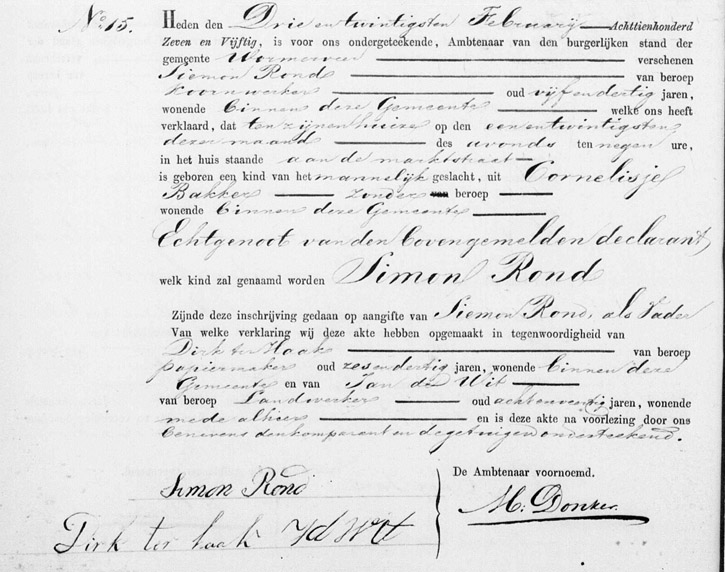 No. 15.
Heden den Drie en twintigsten February Achttienhonderd
Zeven en Vijftig, is voor ons ondergeteekende, Ambtenaar van den burgerlijken stand der
gemeente Wormerveer verschenen
Siemon Rond van beroep
Koornwerker oud vijf en dertig jaren,
wonende binnen deze Gemeente welke ons heeft
verklaard, dat ten zijnen huize op den een en twintigsten
dezer maand des avonds ten negen ure,
in het huis staande aan de marktstraat
is geboren een kind van het mannelijk geslacht, uit Cornelisje
Bakker zonder van beroep
wonende binnen deze Gemeente
Echtgenoot van den bovengemelden declarant
welk kind zal genaamd worden Simon Rond
Zijnde deze inschrijving gedaan op aangifte van Siemon Rond, als Vader
Van welke verklaring wij deze akte hebben opgemaakt in tegenwoordigheid van
Dirk ter Haak van beroep
papiermaker oud zes en dertig jaren, wonende binnen deze
Gemeente en van Jan de Wit
van beroep Landwerker oud jaren, wonende
mede alhier en is deze akte na voorlezing door ons
benevens den komparant en de getuigen onderteekend.
Simon Rond
Dirk ter haak Jd Wit
De Ambtenaar voornoemd.
M: Donker.